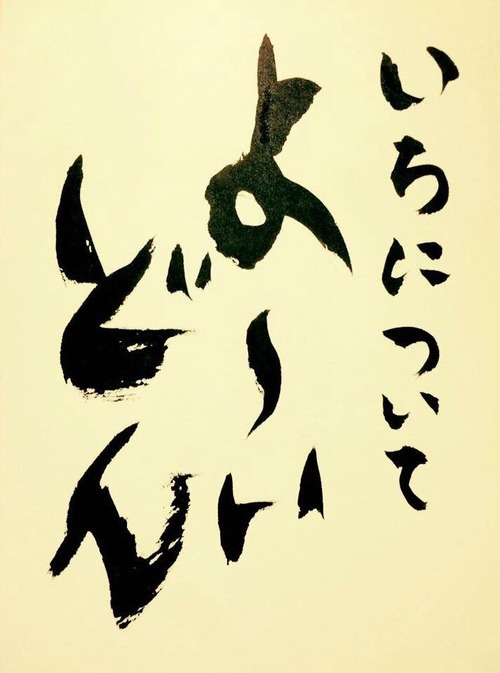 いちについて
よ〜い
どん